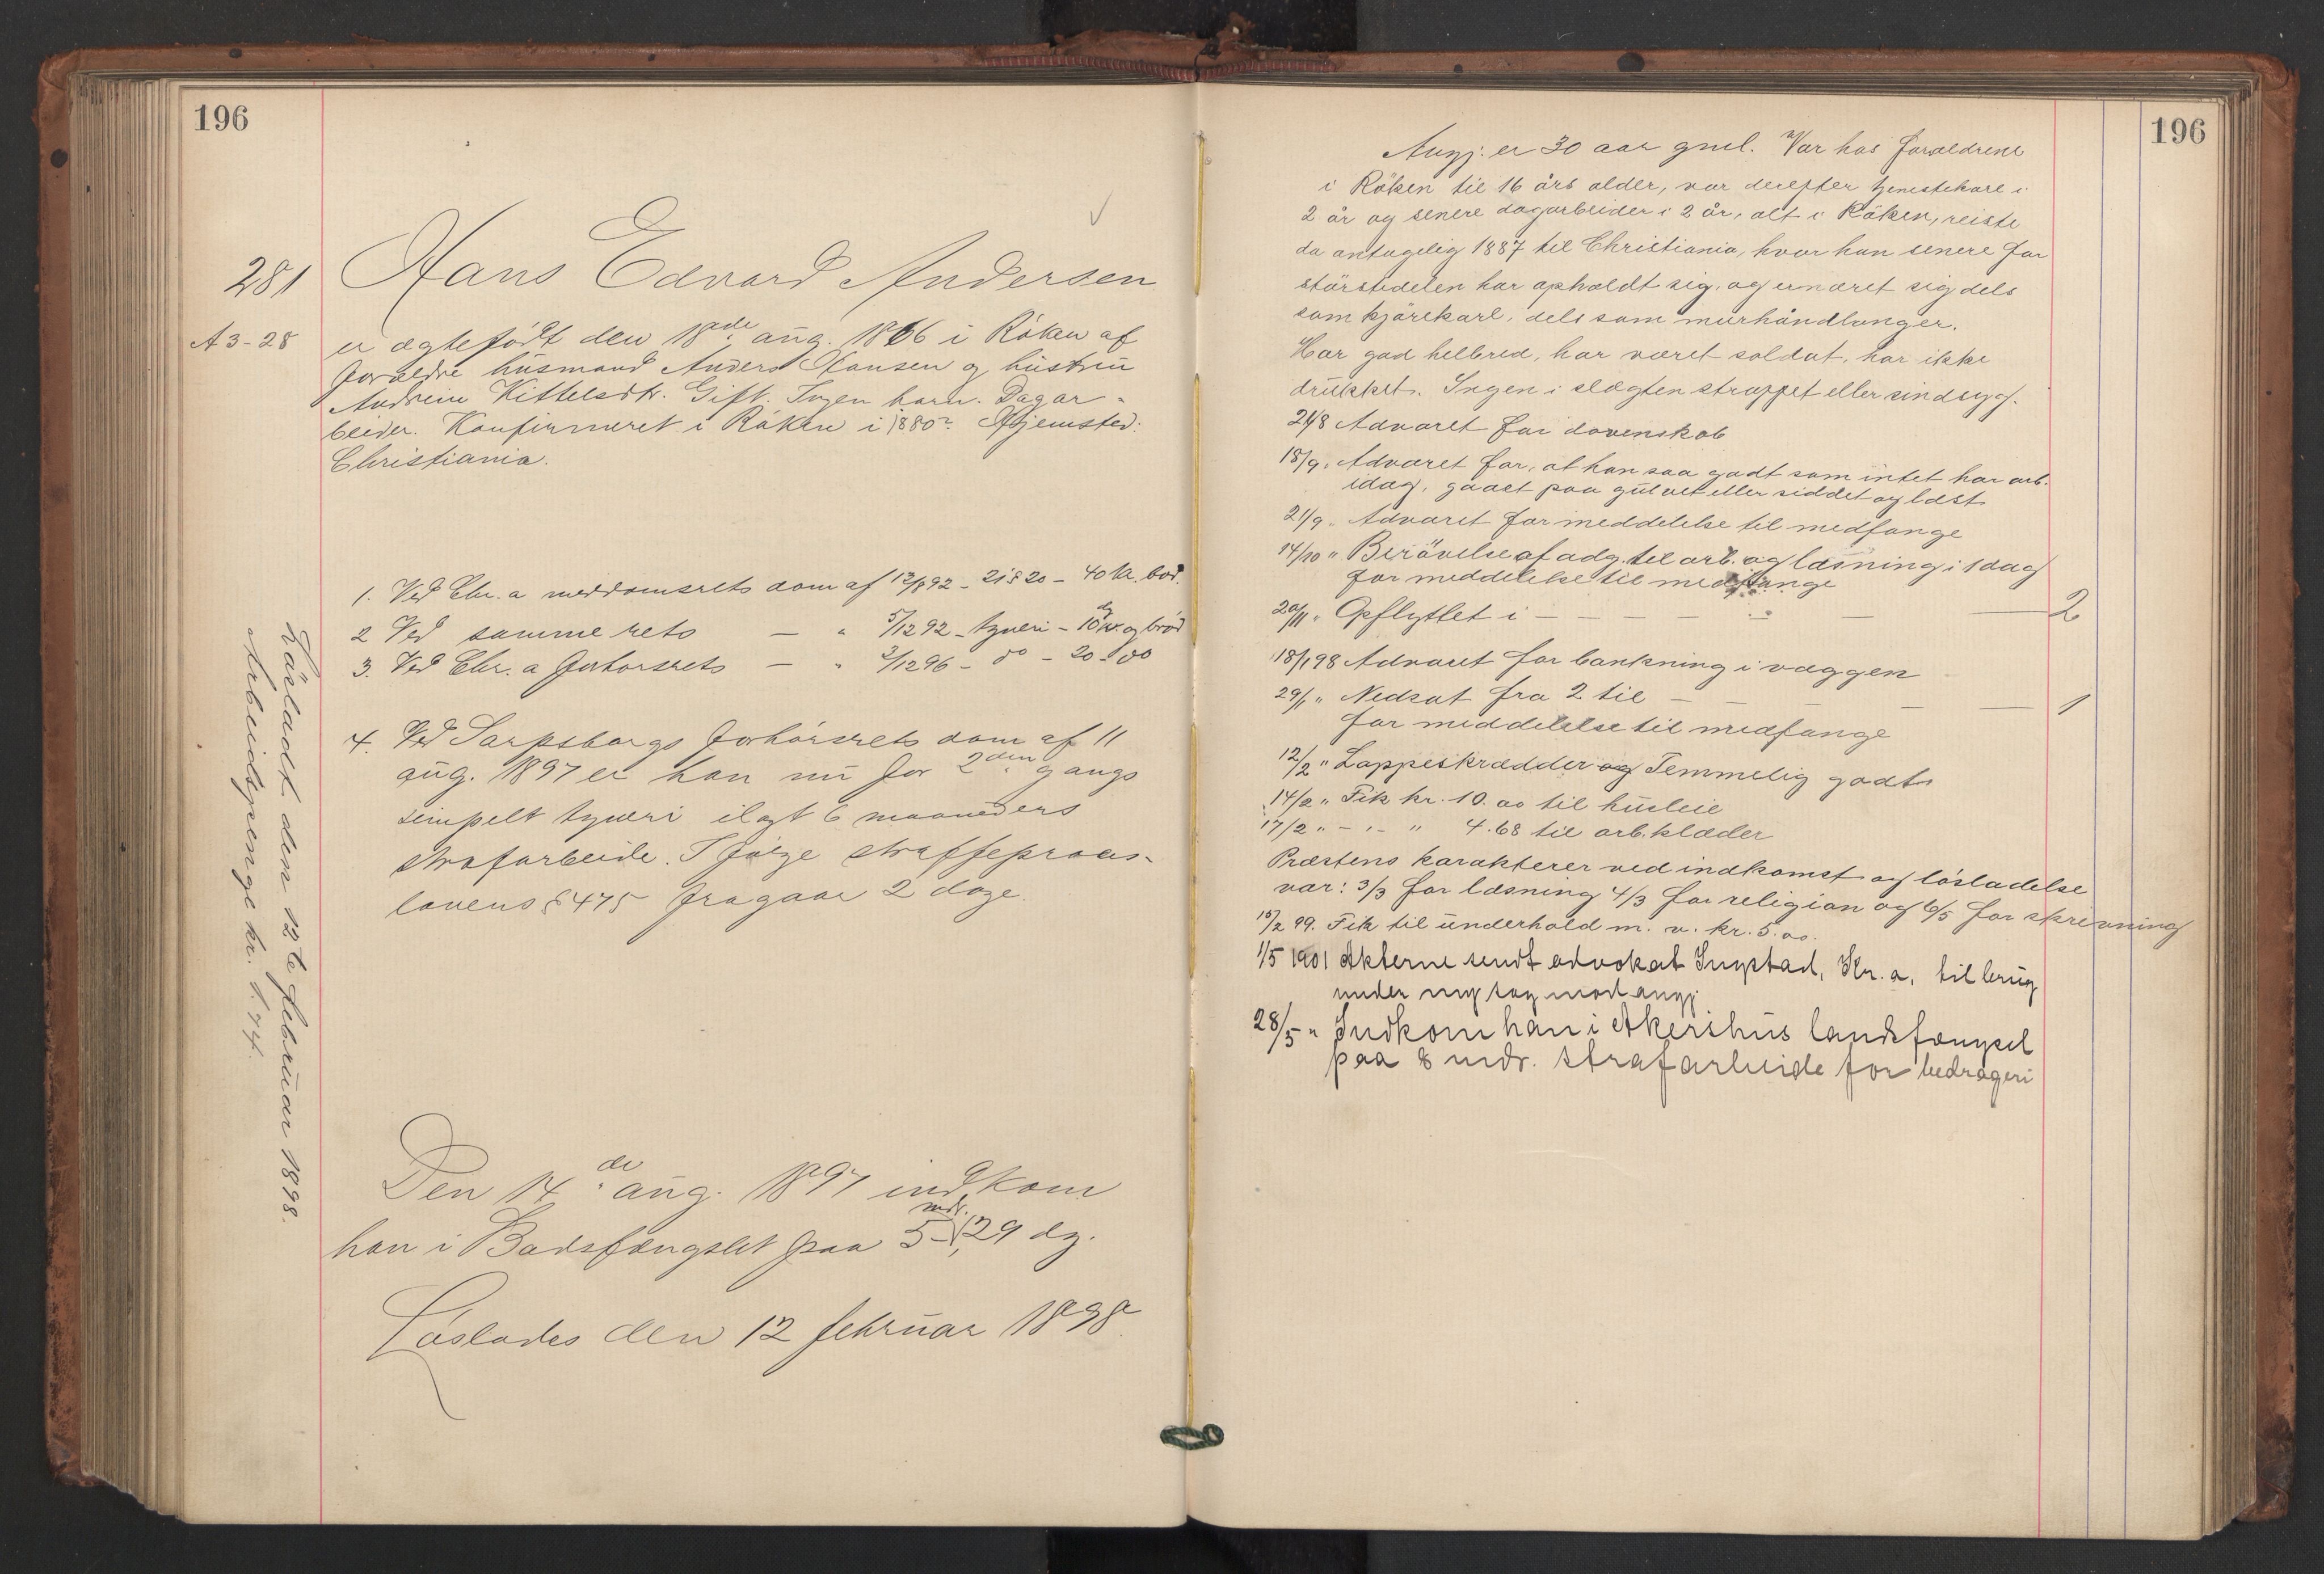 196
281
Hans Edvard Andersen
A 3-28
er ægtefödt den 18de aug. 1866 i Röken af
forældre husmand Anders Hansen og hustru
Andrine Kittelsdtr. Gift. Ingen barn. Dagar-
beider. Konfirmeret i Röken i 1880? Hjemsted:
Christiania.
1. Ved Chr.a meddomsrets dom af 12/8 92 - 40 kr. bod.
2 Ved samme rets — " 5/12 92 - tyveri - 10 dg. v. og bröd
3. Ved Chr.a forhörsrets — " 2/12 96 - do - 20 - do
4. Ved Sarpsborgs forhörsrets dom af 11
aug. 1897 er han nu for 2den gangs
simpelt tyveri ilagt 6 maaneders
strafarbeide. I fölge straffeproces-
lovens § 475 fragaar 2 dage.
Den 14de aug. 1897 indkom
han i Bodsfængslet paa 5 mdr. 29 dg.
Löslades den 12 februar 1898
Lösladt den 12te februar 1898.
Arbeidspenge kr. 1.74.
196
Angj. er 30 aar gml. Var hos forældrene
i Röken til 16 års alder, var derefter tjenestekarl i
2 år og senere dagarbeider i 2 år, alt i Röken, reiste
da antagelig 1887 til Christiania, hvor han senere for
störstedelen har opholdt sig, og ernæret sig dels
som kjörekarl, dels som murhåndlanger.
Har god helbred, har været soldat, har ikke
drukket. Ingen i slægten straffet eller sindsyg.
21/8 Advaret for dovenskab
18/9 " Advaret for, at han saa godt som intet har arb.
idag, gaaet paa gulvet eller siddet og læst
21/9 " Advaret for meddelelse til medfange
14/10 " Berövelse af adg. til arb. og læsning i 1 dag
for meddelelse til medfange
20/11 " Opflyttet i — — — — — — 2
18/1 98 Advaret for bankning i væggen
29/1 " Nedsat fra 2 til — — — — — 1
for meddelelse til medfange
12/2 " Lappeskrædder og Temmelig godt
14/2 " Fik kr. 10.00 til husleie
17/2 " - " - " 4.68 til arb. klæder
Præstens karakterer ved indkomst og lösladelse
var: 3/3 for læsning 4/3 for religion og 6/5 for skrivning
16/2 99. Fik til underhold m. v. kr. 5.00.
1/5 1901 Akterne sendt advokat Ingstad, Kr.a, til brug
under ny sag mod angj.
28/5 " Indkom han i Akershus landsfængsel
paa 8 mdr. strafarbeide for bedrageri